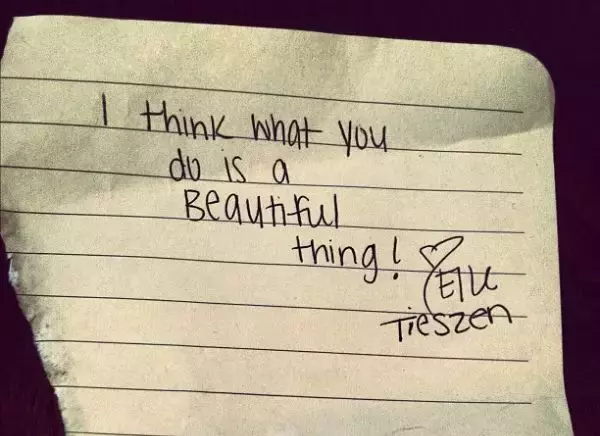 I think what you
do is a
Beautiful
thing!
Tieszen